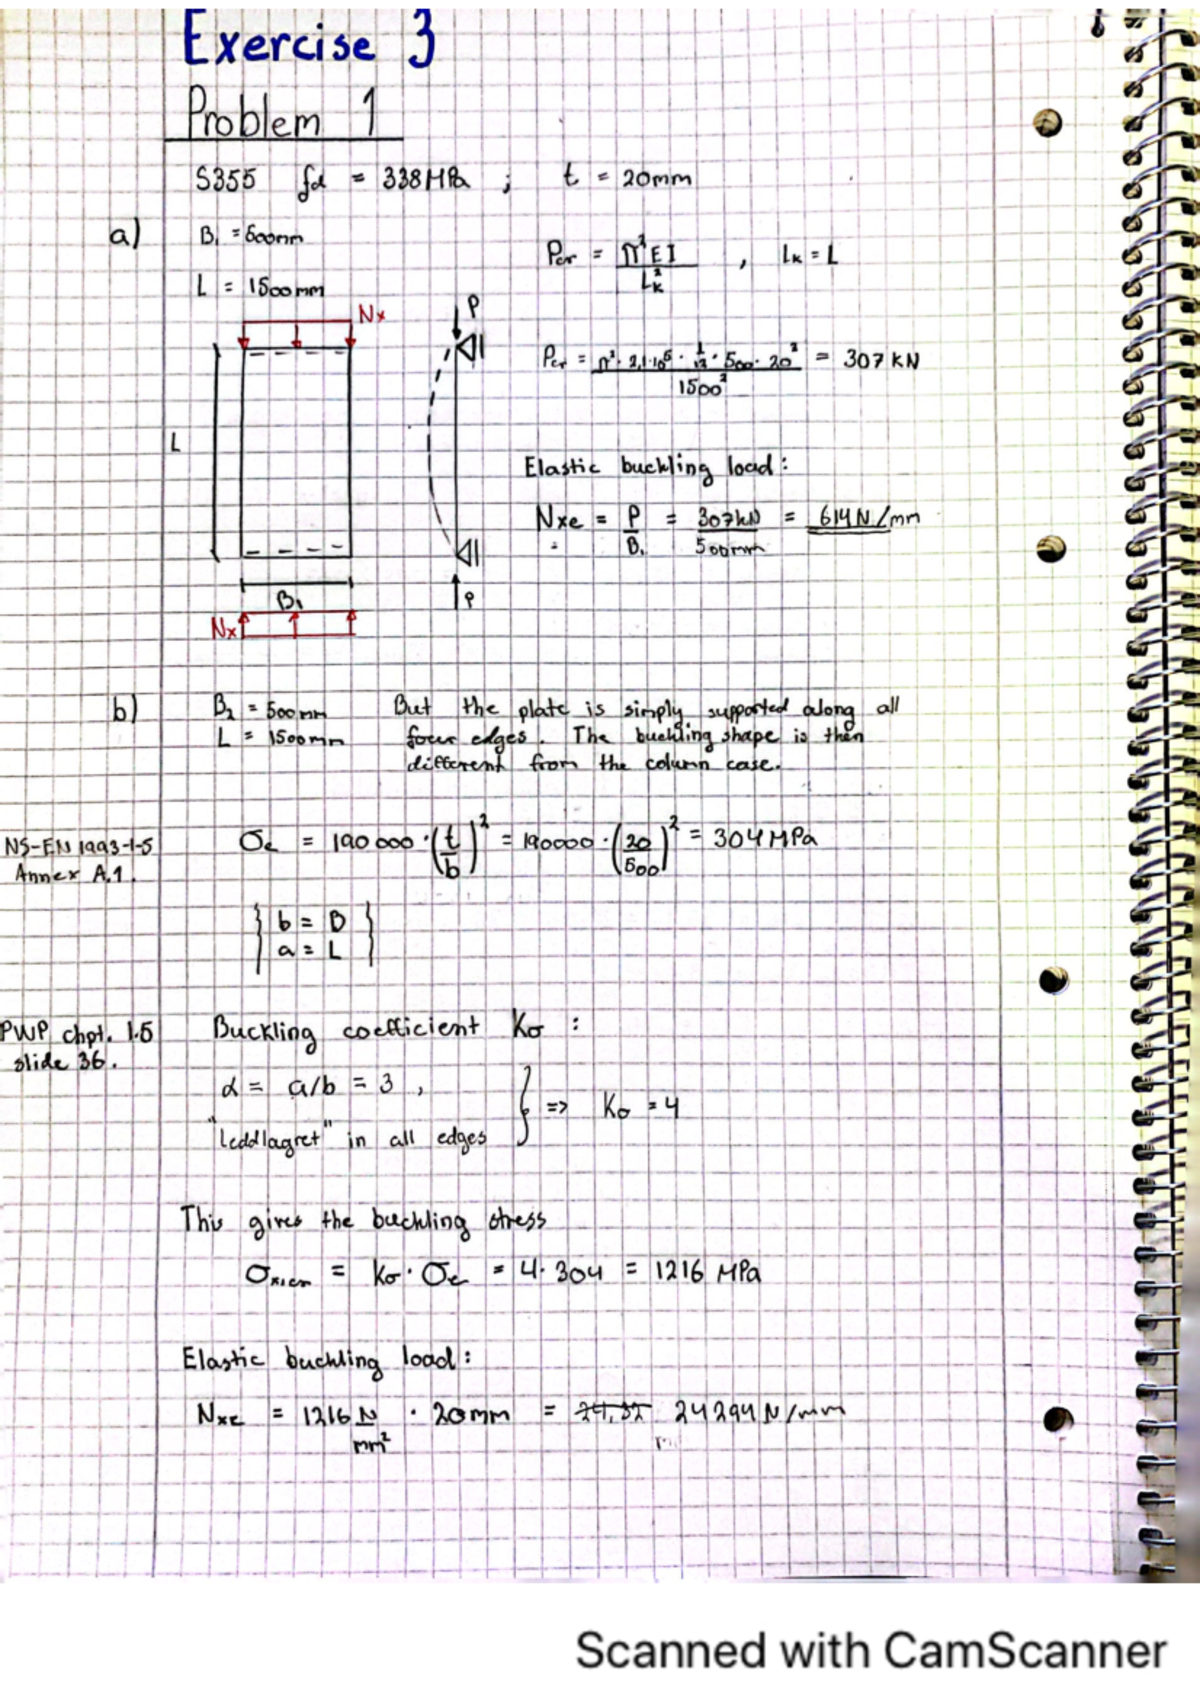 Exercise 3
Problem 1
S355 fd = 338MPa ; t = 20mm
a) B₁ = 500mm
L = 1500mm
Pcr = π²EI / Lk² , Lk = L
Nx
P
Pcr = π² · 2,1·10⁵ · 1/12 · 500 · 20³ / 1500² = 307 kN
L
Elastic buckling load:
Nxe = P / B₁ = 307kN / 500mm = 614 N/mm
B₁
Nx
P
b) B₂ = 500mm
L = 1500mm
But the plate is simply supported along all
four edges. The buckling shape is then
different from the column case.
NS-EN 1993-1-5
Annex A.1.
σe = 190 000 · (t/b)² = 190000 · (20/500)² = 304 MPa
{ b = B }
{ a = L }
PWP chpt. 1.5
slide 36.
Buckling coefficient Kσ :
α = a/b = 3 ,
"Leddlagret" in all edges
} => Kσ = 4
This gives the buckling stress
σx,cr = Kσ · σe = 4 · 304 = 1216 MPa
Elastic buckling load:
Nxe = 1216 N/mm² · 20mm = 24,32 24294 N/mm
Scanned with CamScanner